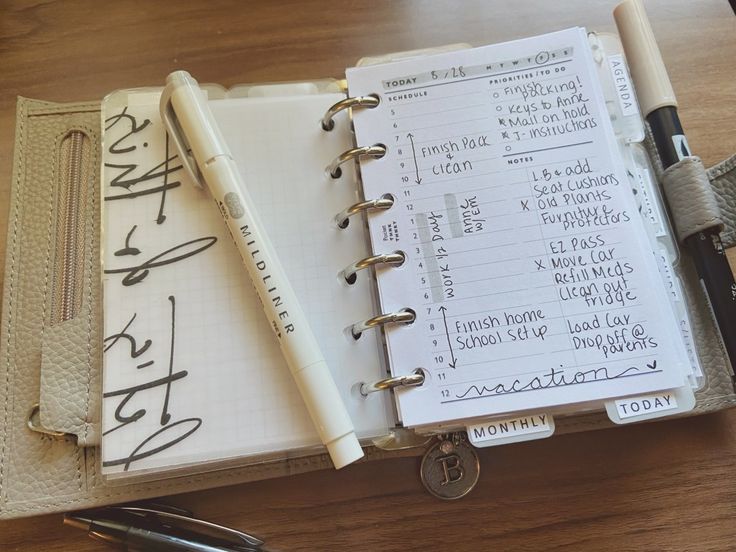 TODAY 8/28 M T W T F S S
SCHEDULE
5
6
7
8
9
10
11
12
1
2
3
4
5
6
7
8
9
10
11
12
Finish Pack
&
Clean
WORK 1/2 Day
Anne
Finish home
School Setup
vacation
PRIORITIES / TO DO
Finish
packing!
Keys to Anne
Mail on hold
J-instructions
NOTES
L.B & add
Seat Cushions
x Old Plants
Furniture
protectors
EZ Pass
x Move Car
Refill Meds
Clean out
fridge
Load Car
Drop off @
parents
AGENDA
MONTHLY
TODAY
MILDLINER
B